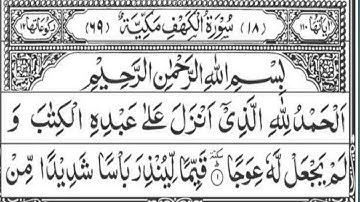 اٰیاتها ۱۱۰ (۱۸) سُوْرَةُ الْكَهْفِ مَكِّیَّةٌ (۶۹) رکوعاتها ۱۲
بِسْمِ اللّٰهِ الرَّحْمٰنِ الرَّحِیْمِ
اَلْحَمْدُ لِلّٰهِ الَّذِیْۤ اَنْزَلَ عَلٰى عَبْدِهِ الْكِتٰبَ وَ
لَمْ یَجْعَلْ لَّهٗ عِوَجًا ؕ۱ قَیِّمًا لِّیُنْذِرَ بَاْسًا شَدِیْدًا مِّنْ